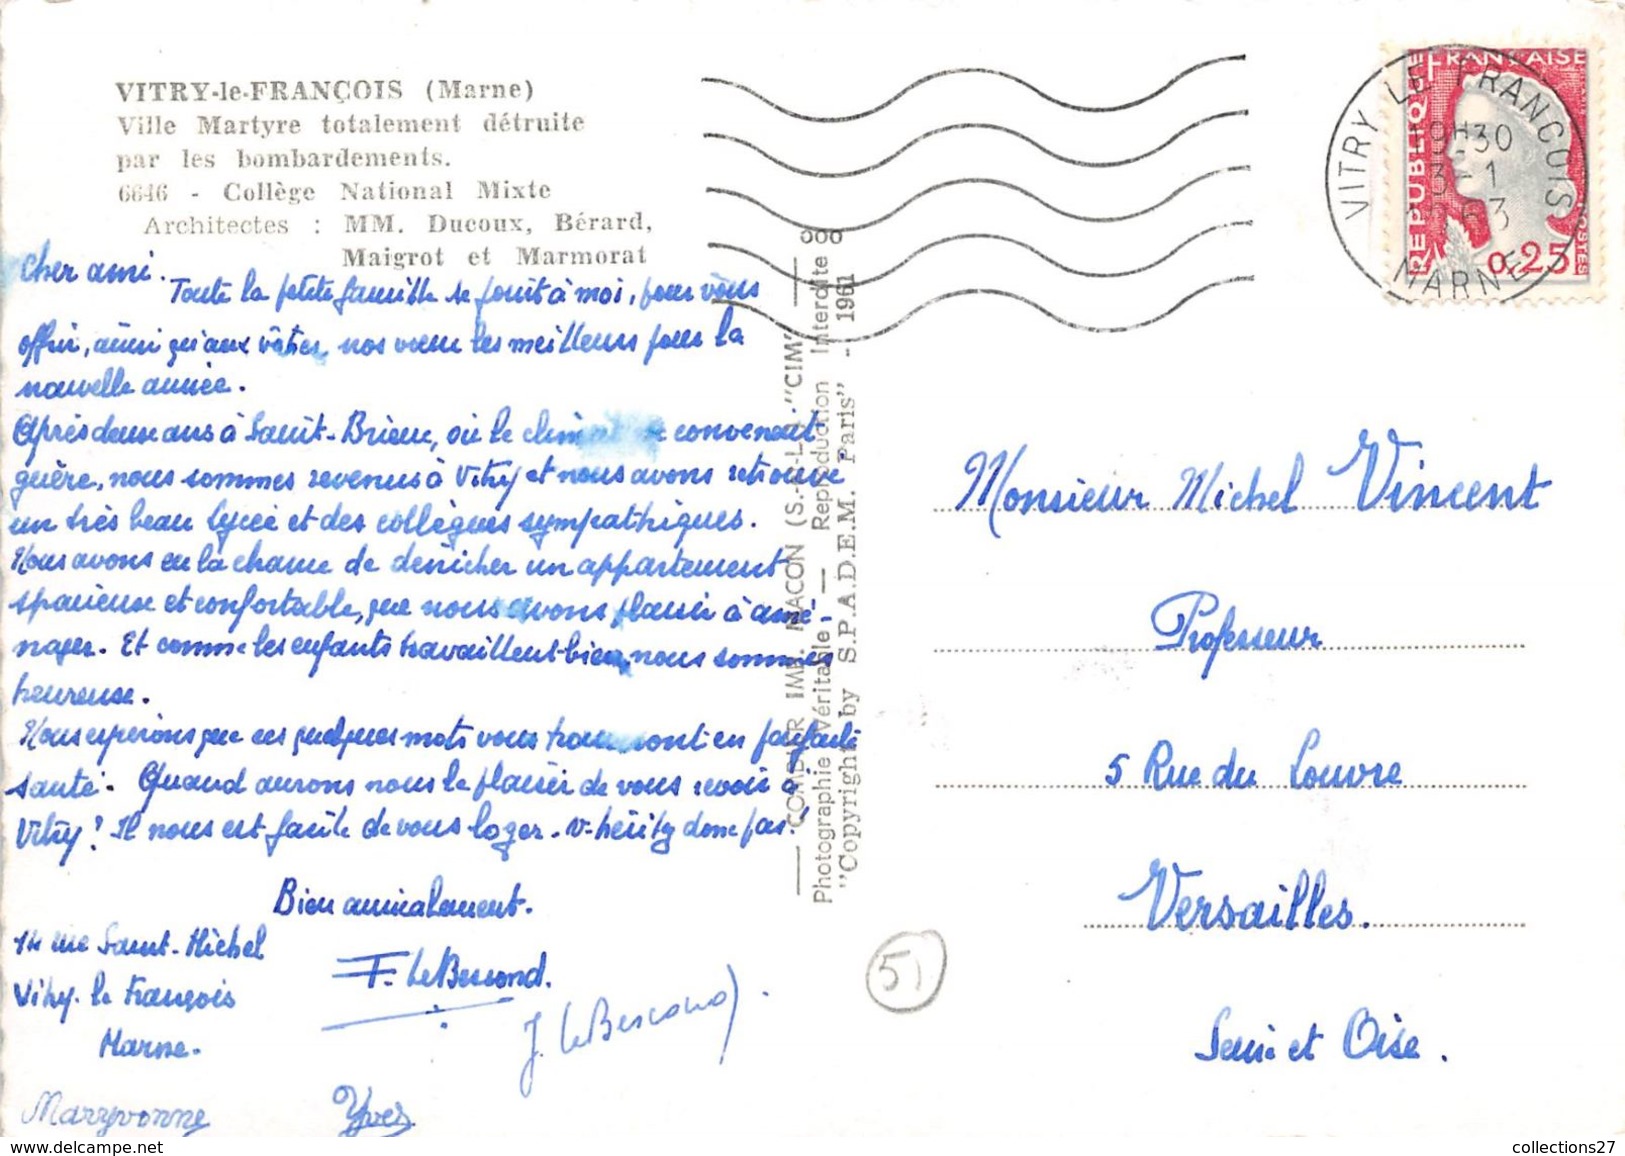 VITRY-le-FRANÇOIS (Marne)
Ville Martyre totalement détruite
par les bombardements.
6646 - Collège National Mixte
Architectes : MM. Ducoux, Bérard,
Maigrot et Marmorat
Cher ami.
Toute la petite famille se joint à moi, pour vous
offrir, ainsi qu'aux vôtres, nos vœux les meilleurs pour la
nouvelle année.
Après deux ans à Saint-Brieuc, où le climat ne convenait
guère, nous sommes revenus à Vitry et nous avons retrouvé
un très beau lycée et des collègues sympathiques.
Nous avons eu la chance de dénicher un appartement
spacieux et confortable, que nous avons plaisir à amé-
nager. Et comme les enfants travaillent bien, nous sommes
heureux.
Nous espérons que ces quelques mots vous trouveront en parfaite
santé. Quand aurons nous le plaisir de vous revoir à
Vitry? Il nous est facile de vous loger. N'hésitez donc pas!
Bien amicalement.
14 rue Saint-Michel
Vitry-le François
Marne.
F. Le Bescond.
J. Le Bescond.
Maryvonne
Yves
COMBIER IMP. MACON (S.-&-L.) "CIM"
Photographie Véritable — Reproduction Interdite
"Copyright by S.P.A.D.E.M. Paris" - 1961
VITRY LE FRANCOIS
19H30
3-1
1963
MARNE
REPUBLIQUE FRANÇAISE
0,25
POSTES
Monsieur Michel Vincent
Professeur
5 Rue du Louvre
Versailles.
Seine et Oise.
51
collections27